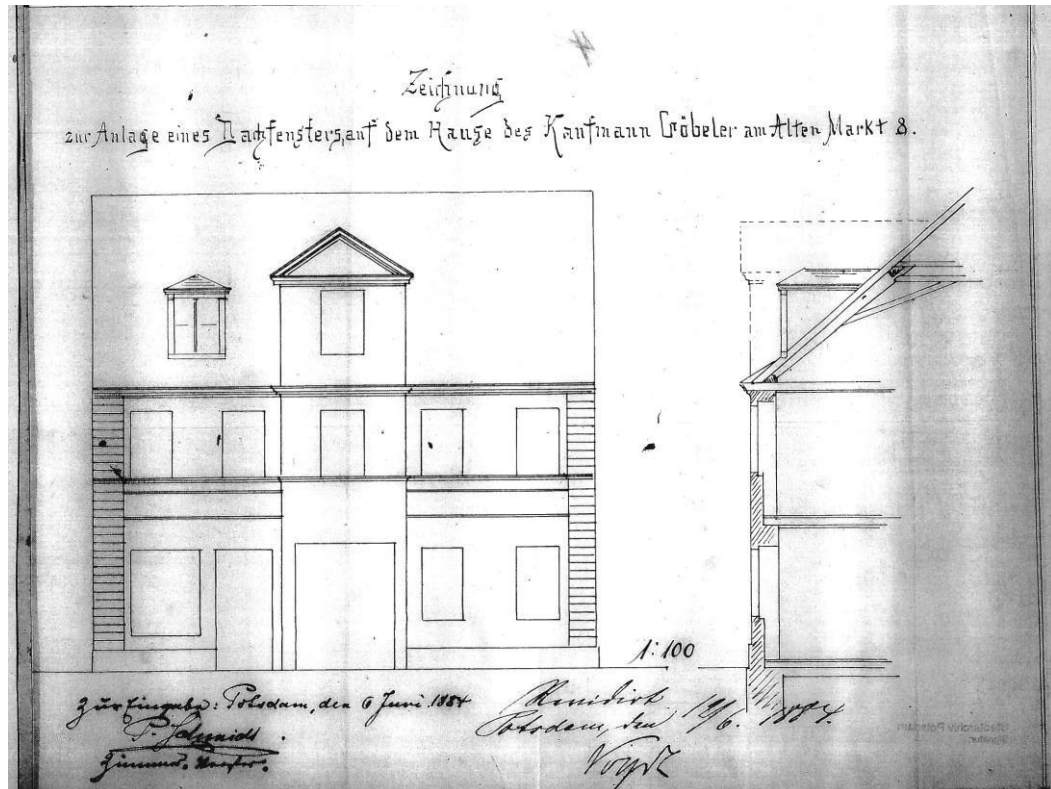 4
Zeichnung
zur Anlage eines Dachfensters, auf dem Hause des Kaufmann Göbeler am Alten Markt 8.
1:100
Zur Eingabe: Potsdam, den 6 Juni 1884
P. Schmidt
Zimmer-Meister.
Revidirt.
Potsdam, den 10/6. 1884.
Voigt
Stadtarchiv Potsdam